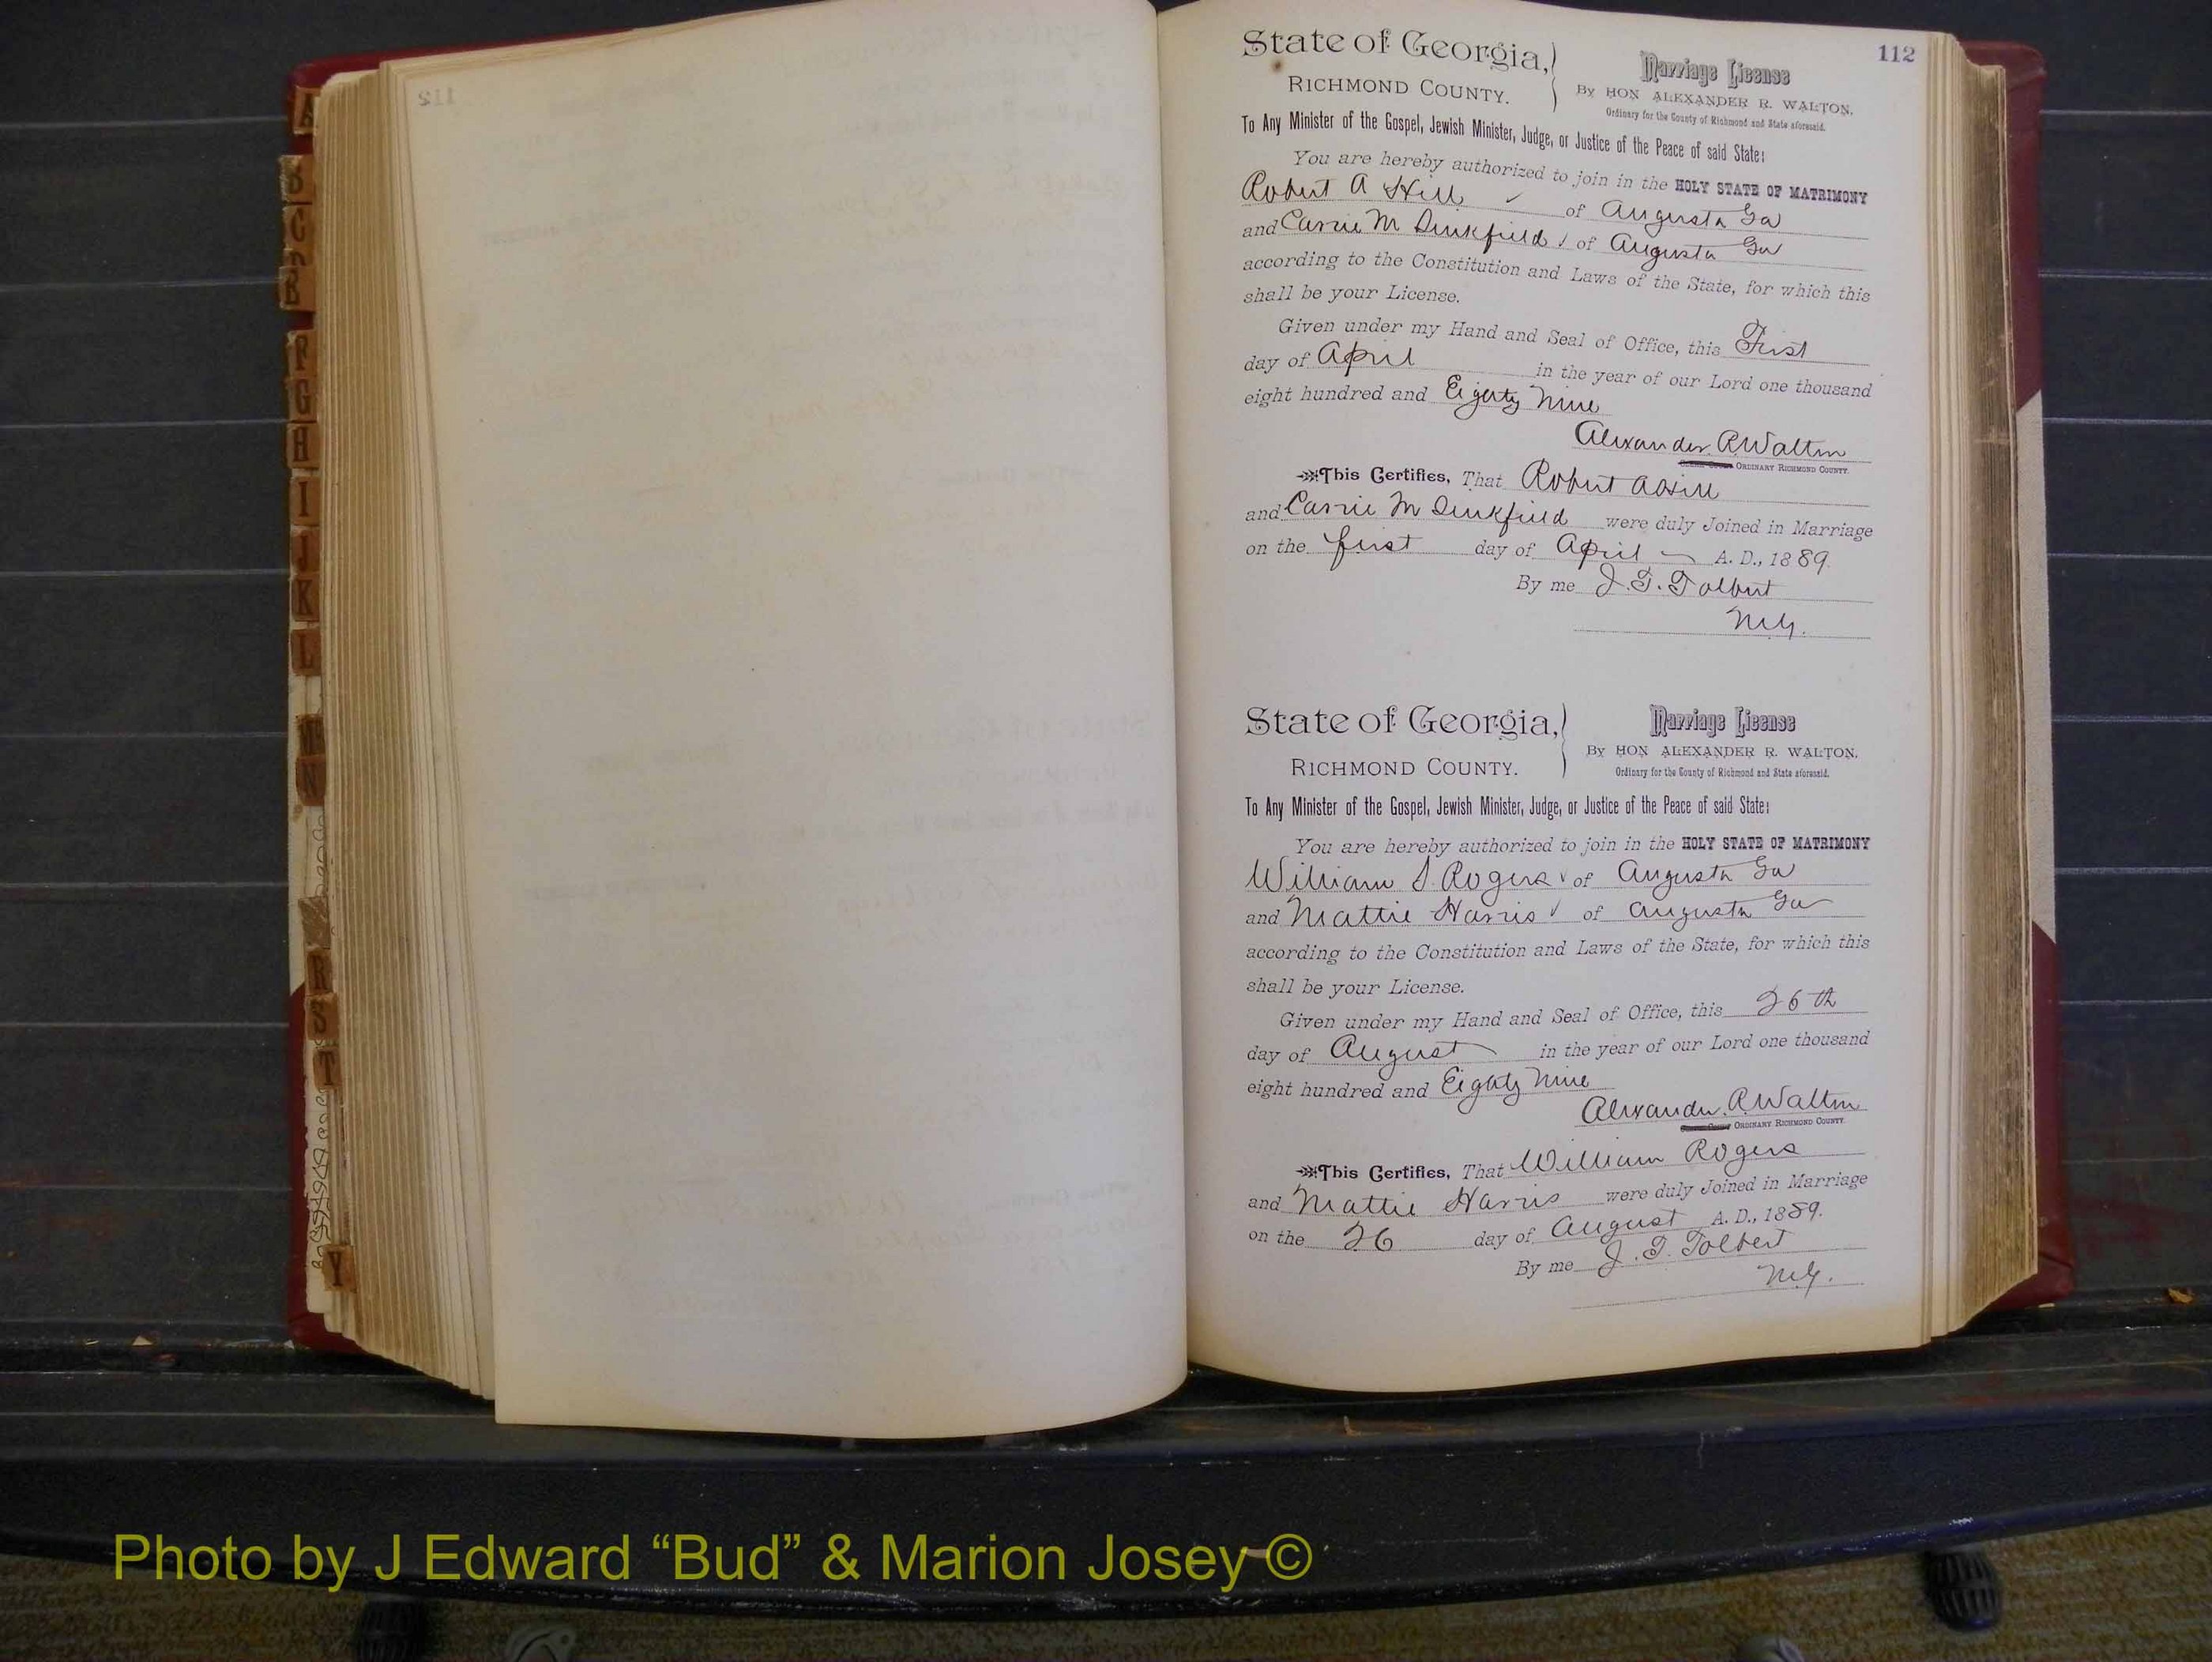 112
State of Georgia,
RICHMOND COUNTY.
Marriage License
By HON ALEXANDER R. WALTON,
Ordinary for the County of Richmond and State aforesaid.
To Any Minister of the Gospel, Jewish Minister, Judge, or Justice of the Peace of said State:
You are hereby authorized to join in the HOLY STATE OF MATRIMONY
Robert A Hill of Augusta Ga
and Carrie M Dinkfield of Augusta Ga
according to the Constitution and Laws of the State, for which this
shall be your License.
Given under my Hand and Seal of Office, this First
day of April in the year of our Lord one thousand
eight hundred and Eigerty Nine
Alexander R Walton
ORDINARY RICHMOND COUNTY.
This Certifies, That Robert A Hill
and Carrie M Dinkfield were duly Joined in Marriage
on the first day of April A. D., 1889.
By me J. T. Tolbert
M.G.
State of Georgia,
RICHMOND COUNTY.
Marriage License
By HON ALEXANDER R. WALTON,
Ordinary for the County of Richmond and State aforesaid.
To Any Minister of the Gospel, Jewish Minister, Judge, or Justice of the Peace of said State:
You are hereby authorized to join in the HOLY STATE OF MATRIMONY
William S. Rogers of Augusta Ga
and Mattie Harris of Augusta Ga
according to the Constitution and Laws of the State, for which this
shall be your License.
Given under my Hand and Seal of Office, this 26th
day of August in the year of our Lord one thousand
eight hundred and Eighty Nine
Alexander R Walton
ORDINARY RICHMOND COUNTY.
This Certifies, That William Rogers
and Mattie Harris were duly Joined in Marriage
on the 26 day of August A. D., 1889.
By me J. T. Tolbert
M.G.
A
B
C
F
G
H
I
J
K
L
N
R
S
T
Y
Photo by J Edward “Bud” & Marion Josey ©